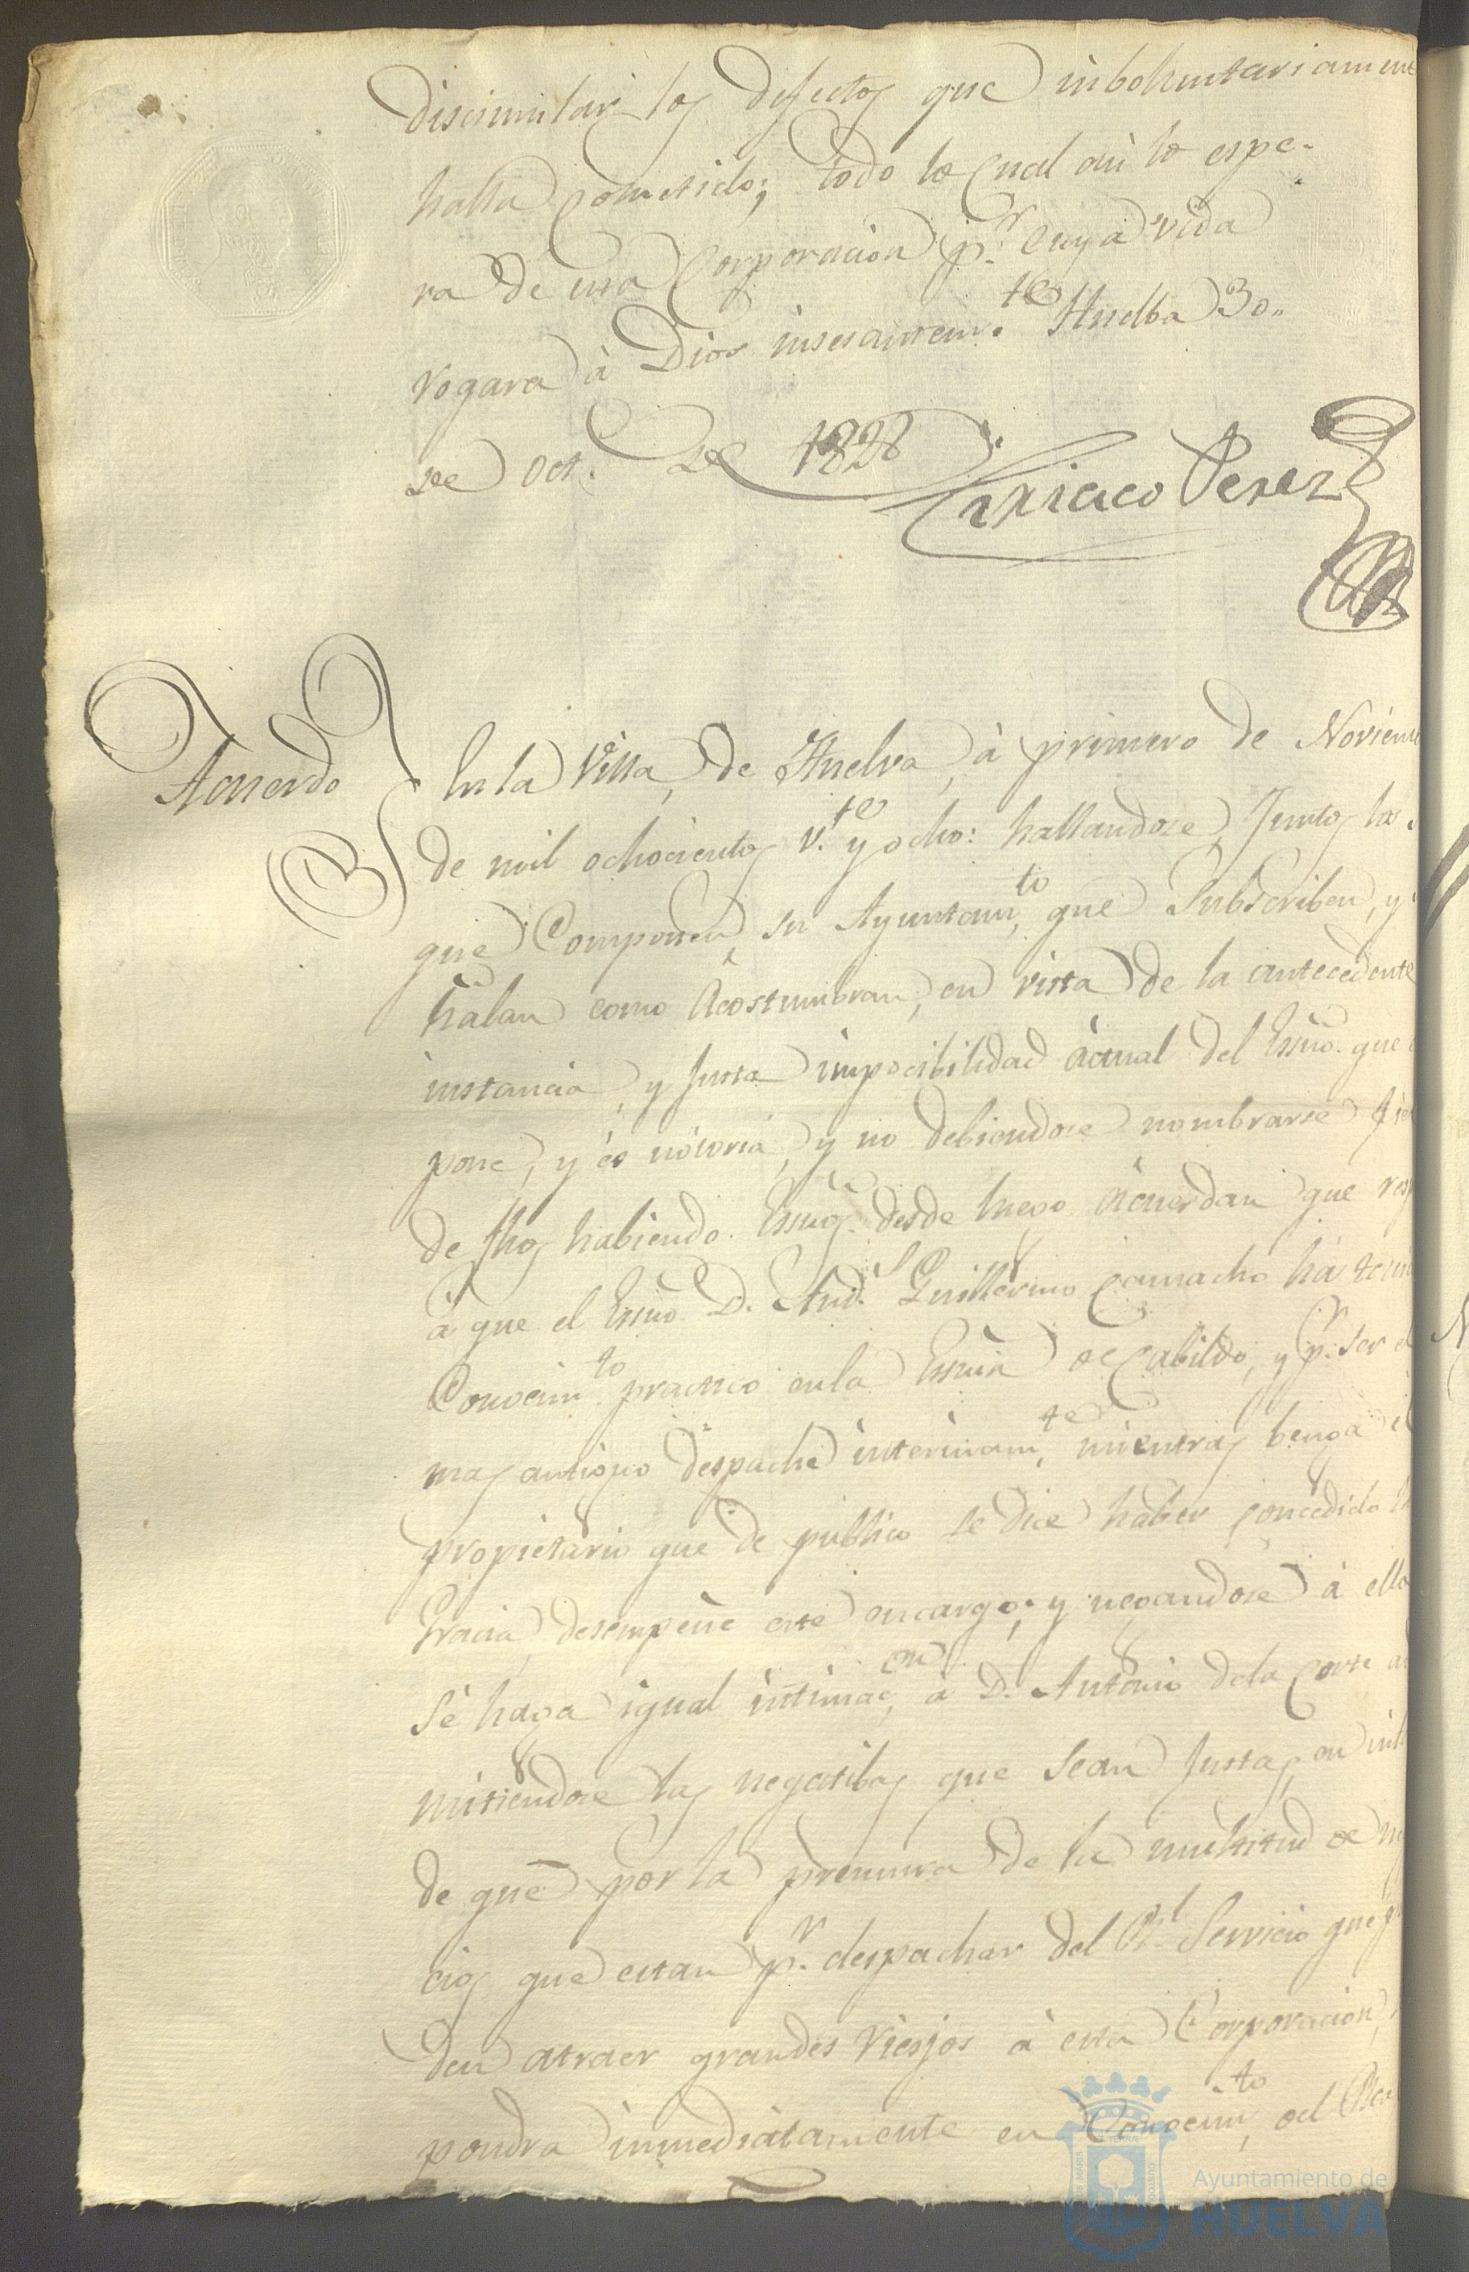 discimular los defectos que imboluntariament
halla cometido; todo lo qual asi lo espe-
ra de una Corporacion pr. cuya vida
rogara à Dios insesantemte. Huelba 30..
de Oct. de 1828
Ciriaco Perez
Acuerdo
En la Villa, de Huelva, à primero de Noviem
de mil ochocientos vte. y ocho: hallandose, Juntos los
que Componen, su Ayuntamto, que Subscriben, y
ñalan como Acostumbran, en vista de la antecedente
instancia, y Justa imposibilidad àctual del Essno. que
pone, y es nòtoria, y no debiendose nombrarse fie
de fhos habiendo Essnos. desde luego àcuerdan que res
à que el Essno D. And.s Guillermo Camacho hà
Conocimto. practico en la Essnia de Cabildo, y pr. ser el
mas antiguo despache interinamte, mientras benga el
propietario que de publico se dice haber concedido
Gracia, desempeñe este encargo; y negandose à ello
Sè haga igual intimacon, à D. Antonio de la Corte
mitiendose las negatibas que sean Justas, en int
de que por la premura de la multitud de ne
cios que estan pr. despachar del Rl. Servicio que p
den atraer grandes riesjos à esta Corporacion,
pondra inmediatamente en Conocimto, del
Ayuntamiento de
HUELVA